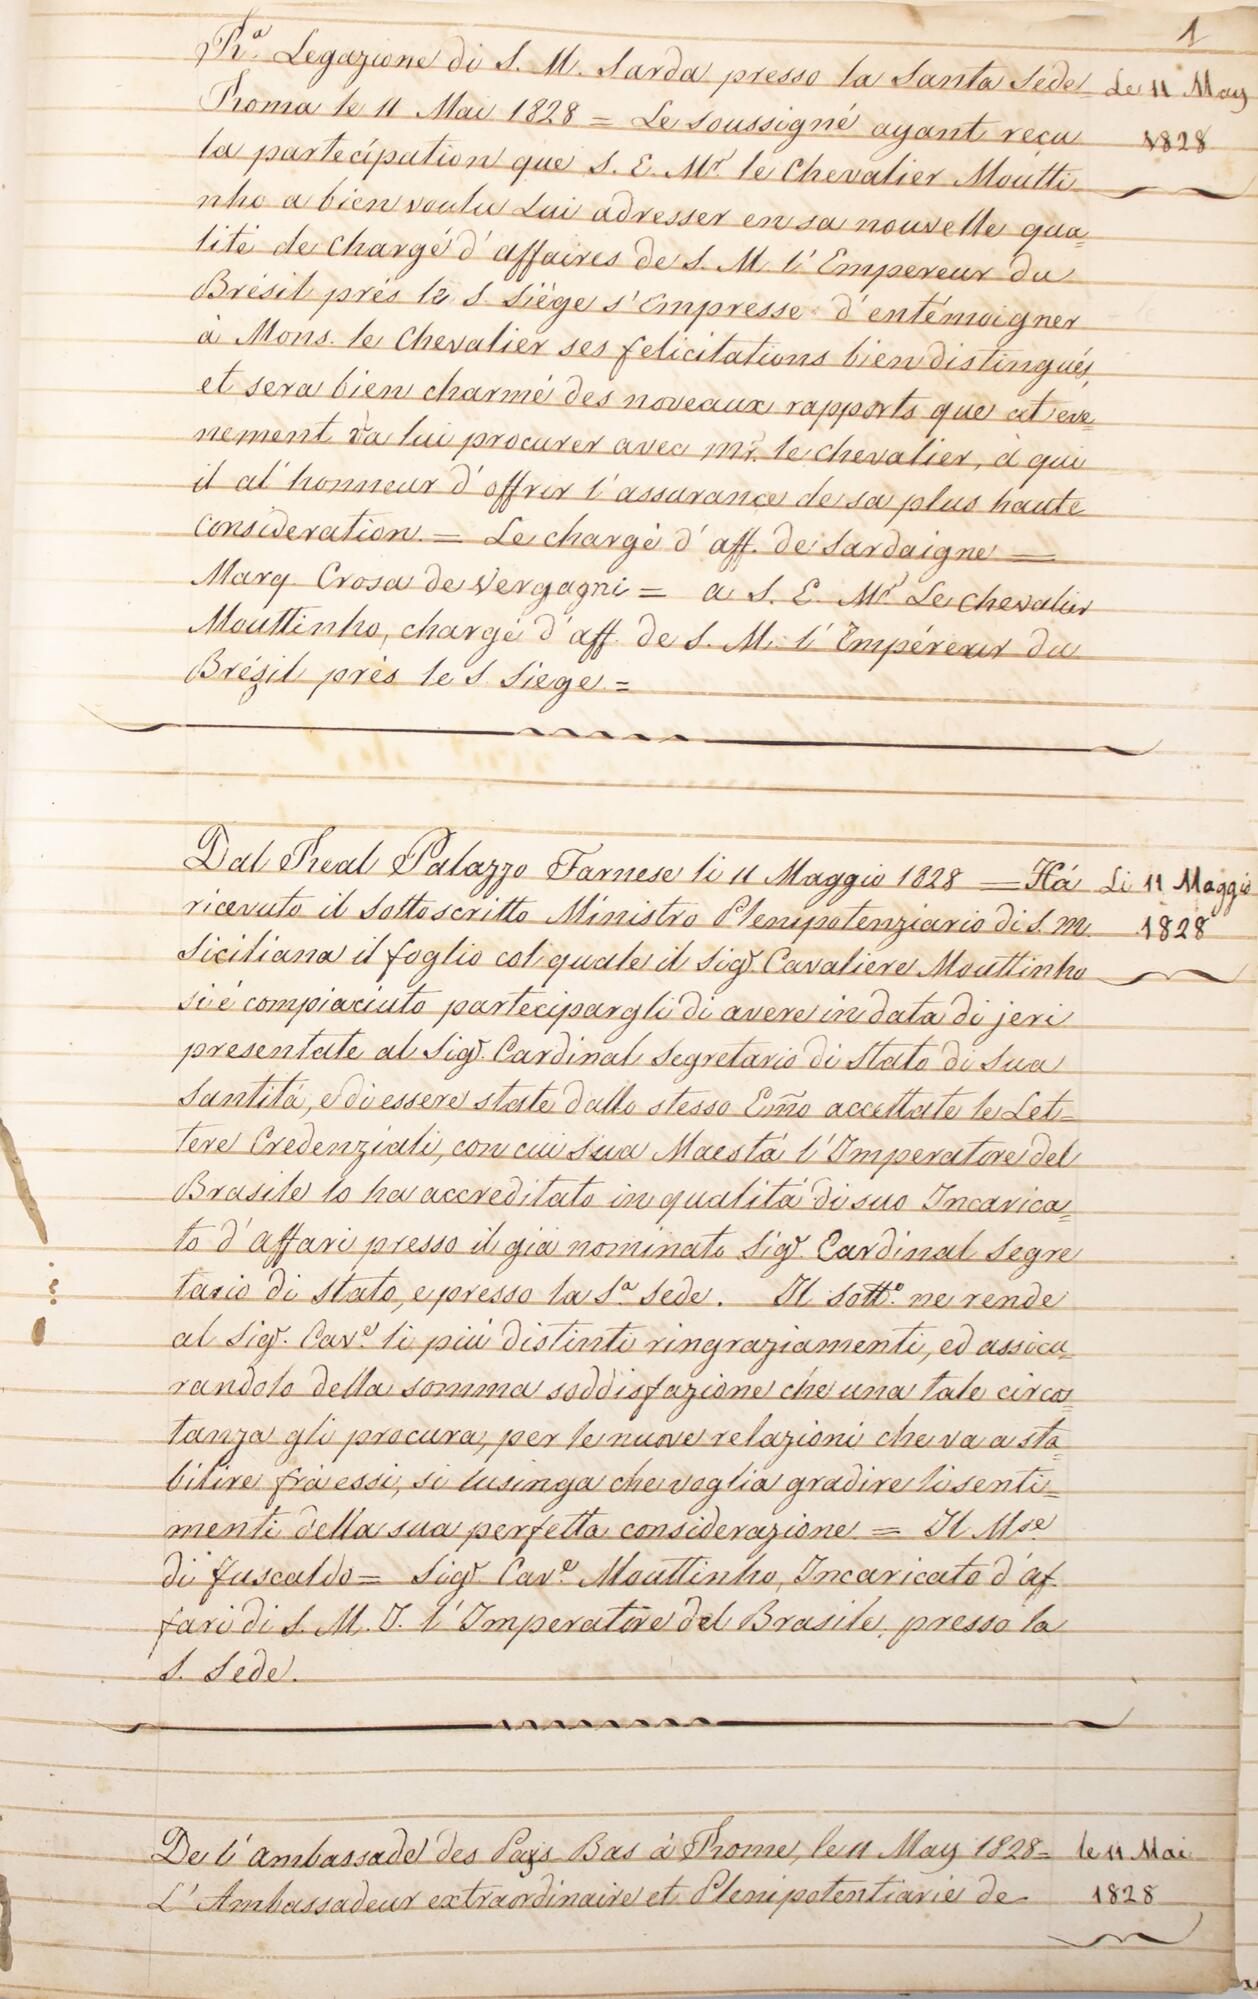 1
Rª. Legazione di S. M. Sarda presso la Santa Sede
Le 11 May
1828
Roma le 11 Mai 1828 = Le soussigné ayant reçu
la partecipation que S. E. Mr. le Chevalier Moutti
nho a bien voulu Lui adresser en sa nouvelle qua=
lité de Chargé d'affaires de S. M. l'Empereur du
Brésil prés le S. Siége s'Empresse d'entémoigner
à Mons. le Chevalier ses felicitations bien distingués,
et sera bien charmé des noveaux rapports que cet eve=
nement va lui procurer avec Mr. le chevalier, à qui
il al'honneur d'offrir l'assurance de sa plus haute
consideration. = Le chargé d'aff. de Sardaigne =
Marq. Crosa de Vergagni = a S. E. Mr. Le Chevalier
Mouttinho, chargé d'aff. de S. M. l'Empéreur du
Brézil prés le S. Siege =
Dal Real Palazzo Farnese li 11 Maggio 1828 = Há
Li 11 Maggio
1828
ricevuto il sottoscritto Ministro Plenipotenziario di S. M.
Siciliana il foglio col quale il Sigr. Cavaliere Mouttinho
si é compiaciuto partecipargli di avere in data di jeri
presentate al Sigr. Cardinal Segretario di Stato di Sua
Santitá, e di essere state dallo stesso Emo accettate le Let=
tere Credenziali, con cui Sua Maestá l'Imperatore del
Brasile lo ha accreditato in qualitá di suo Incarica=
to d'affari presso il giá nominato Sigr. Cardinal Segre
tario di Stato, e presso la Sª. Sede. Il Sottº. ne rende
al Sigr. Cave. li piú distinti ringraziamenti, ed assicu=
randolo della somma soddisfazione che una tale circos=
tanza gli procura, per le nuove relazioni che va a sta=
bilire frà essi, si lusinga che voglia gradire li senti=
menti della sua perfetta considerazione = Il Mse
di Fuscaldo = Sigr. Cave. Mouttinho, Incaricato d'af.
fari di S. M. I. l'Imperatore del Brasile, presso la
S. Sede.
De l'ambassade des Pays Bas à Rome, le 11 May 1828=
le 11 Mai
1828
L'Ambassadeur extraordinaire et Plenipotentiarie de